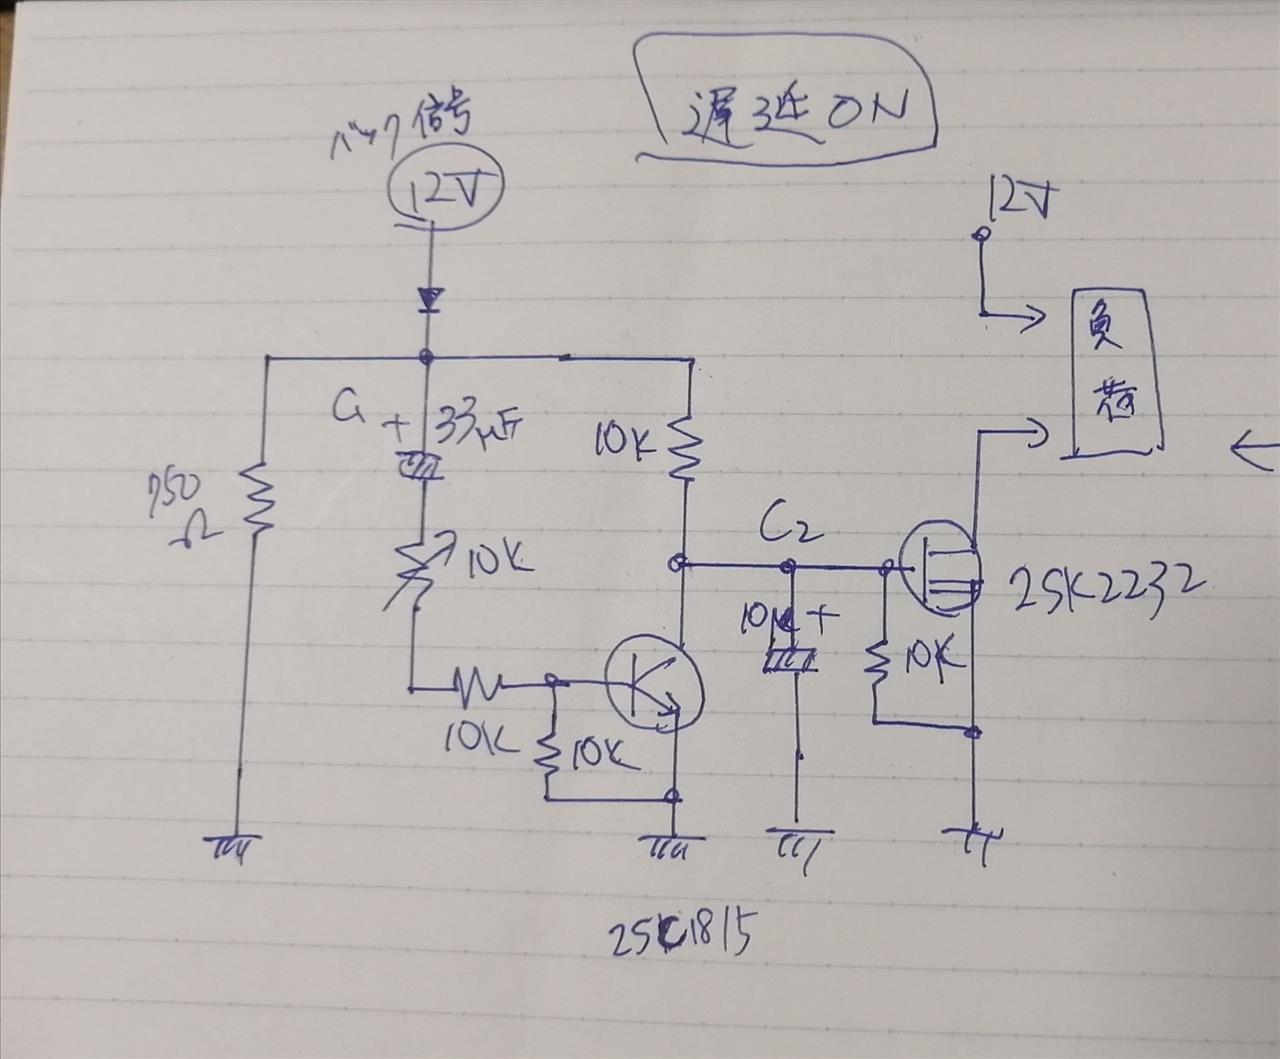 遅延ON
バック信号
12V
12V
負荷
C1
+
33μF
10K
750
Ω
10K
C2
10μ
+
2SK2232
10K
10K
10K
2SC1815